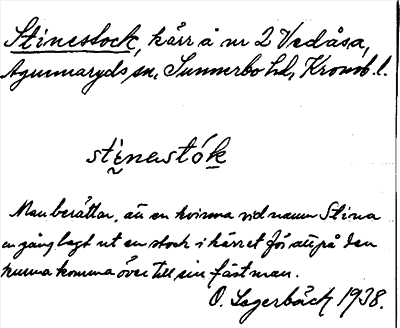 Stinestock, kärr å nr 2 Vedåsa,
Agunnaryds sn, Sunnerbo hd, Kronob. l.
stinastók
Man berättar, att en kvinna vid namn Stina
en gång lagt ut en stock i kärret för att på den
kunna komma över till sin fästman.
O. Lagerbäck 1938.